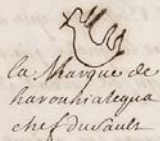 la Marque de
harouhiategua
chef du sault